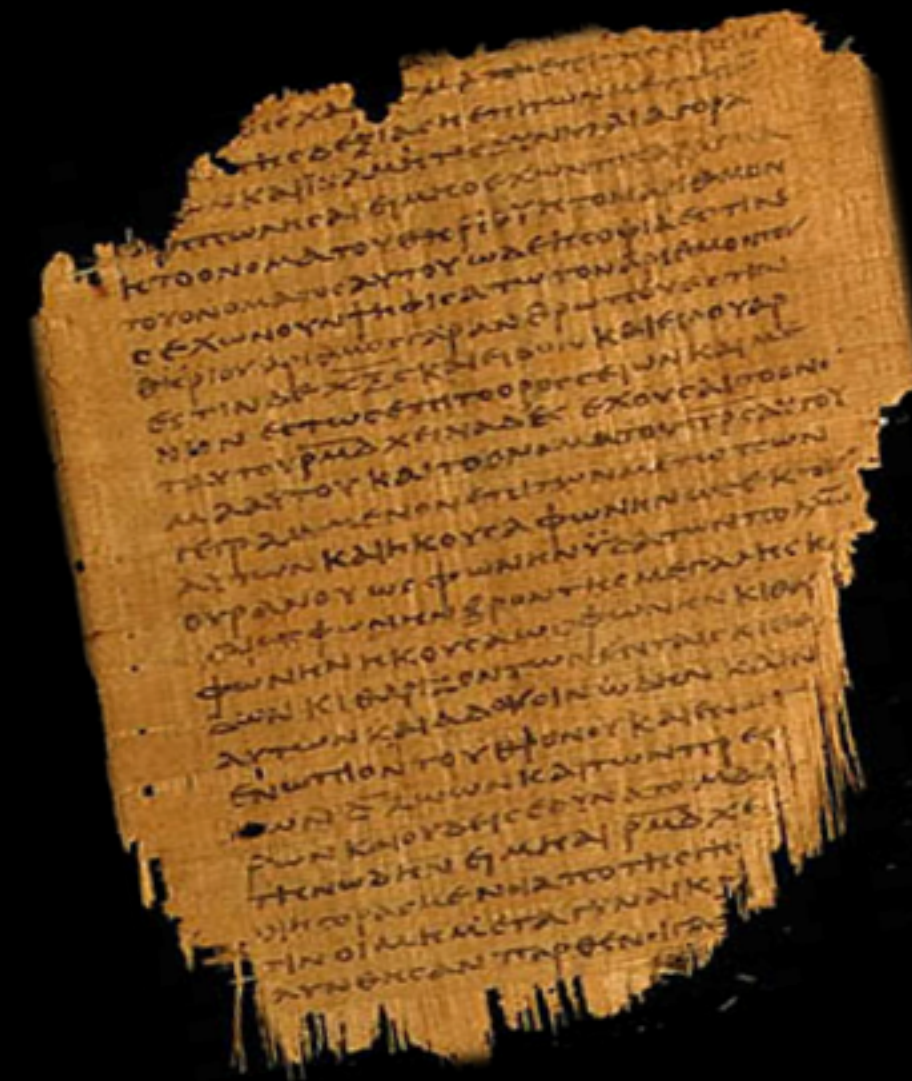 ΤΗCΔΕΞΙΑCΗΕΠΙΤΩΝΜΕΤΩΠ
ΚΑΙΪΝΑΜΗΤΙCΔΥΝΗΤΑΙΑΓΟΡΑ
ΠΩΛΗCΑΙΕΙΜΗΟΕΧΩΝ
ΗΤΟΟΝΟΜΑΤΟΥΘΗΡΙΟΥΗΤΟΝΑΡΙΘΜΟΝ
ΤΟΥΟΝΟΜΑΤΟCΑΥΤΟΥΩΔΕΗCΟΦΙΑΕCΤΙΝ
CΕΧΩΝΟΥΝΨΗΦΙCΑΤΩΤΟΝΑΡΙΘΜΟΝΤΟΥ
ΘΗΡΙΟΥΑΡΙΘΜΟCΓΑΡΑΝΘΡΩΠΟΥΕCΤΙΝ
ΕCΤΙΝΔΕΧΞCΚΑΙΕΙΔΟΝΚΑΙΕΙΔΟΥΑΡ
ΝΙΟΝΕCΤΩCΕΠΙΤΟΟΡΟCCΕΙΩΝΚΑΙΜΕ
ΤΑΥΤΟΥΡΜΔΧΕΙΛΙΑΔΕCΕΧΟΥCΑΙΤΟΟΝΟ
ΜΑΑΥΤΟΥΚΑΙΤΟΟΝΟΜΑΤΟΥΠΡCΑΥΤΟΥ
ΓΕΓΡΑΜΜΕΝΟΝΕΠΙΤΩΝΜΕΤΩΠΩΝ
ΑΥΤΩΝΚΑΙΗΚΟΥCΑΦΩΝΗΝΩCΕΚΤΟΥ
ΟΥΡΑΝΟΥΩCΦΩΝΗΝΫΔΑΤΩΝΠΟΛΛΩ
ΚΑΙΩCΦΩΝΗΝΒΡΟΝΤΗCΜΕΓΑΛΗCΚ
ΦΩΝΗΝΗΝΗΚΟΥCΑΩCΦΩΝΗΝΚΙΘΑΡ
ΔΩΝΚΙΘΑΡΙΖΟΝΤΩΝΕΝΤΑΙCΚΙΘΑ
ΑΥΤΩΝΚΑΙΑΔΟΥCΙΝΩΔΗΝΚΑΙΝ
ΕΝΩΠΙΟΝΤΟΥΘΡΟΝΟΥΚΑΙΕΝΩ
ΤΩΝΔΖΩΩΝΚΑΙΤΩΝΠΡΕC
ΡΩΝΚΑΙΟΥΔΕΙCΕΔΥΝΑΤΟΜΑ
ΤΗΝΩΔΗΝΕΙΜΗΑΙΡΜΔΧΕ
ΗΓΟΡΑCΜΕΝΑΙΑΠΟΤΗCΓΗ
ΤΙΝΟΙΜΗΜΕΤΑΓΥΝΑΙΚ
ΛΥΝΘΗCΑΝΠΑΡΘΕΝΟΙΓΑ